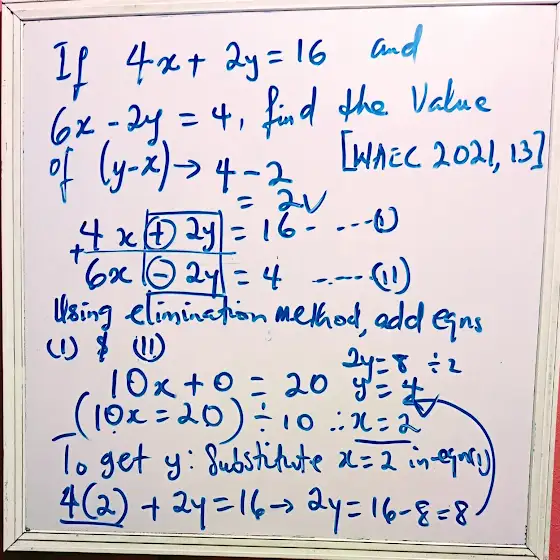 If 4x + 2y = 16 and
6x - 2y = 4, find the Value
of (y-x) → 4 - 2 [WAEC 2021, 13]
= 2✓
+ 4x + 2y = 16 - ---- (I)
6x - 2y = 4 ----- (II)
Using elimination method, add eqns
(I) $ (II)
2y = 8 ÷ 2
10x + 0 = 20 y = 4
(10x = 20) ÷ 10 ∴ x = 2
To get y: Substitute x = 2 in eqn(I)
4(2) + 2y = 16 → 2y = 16 - 8 = 8